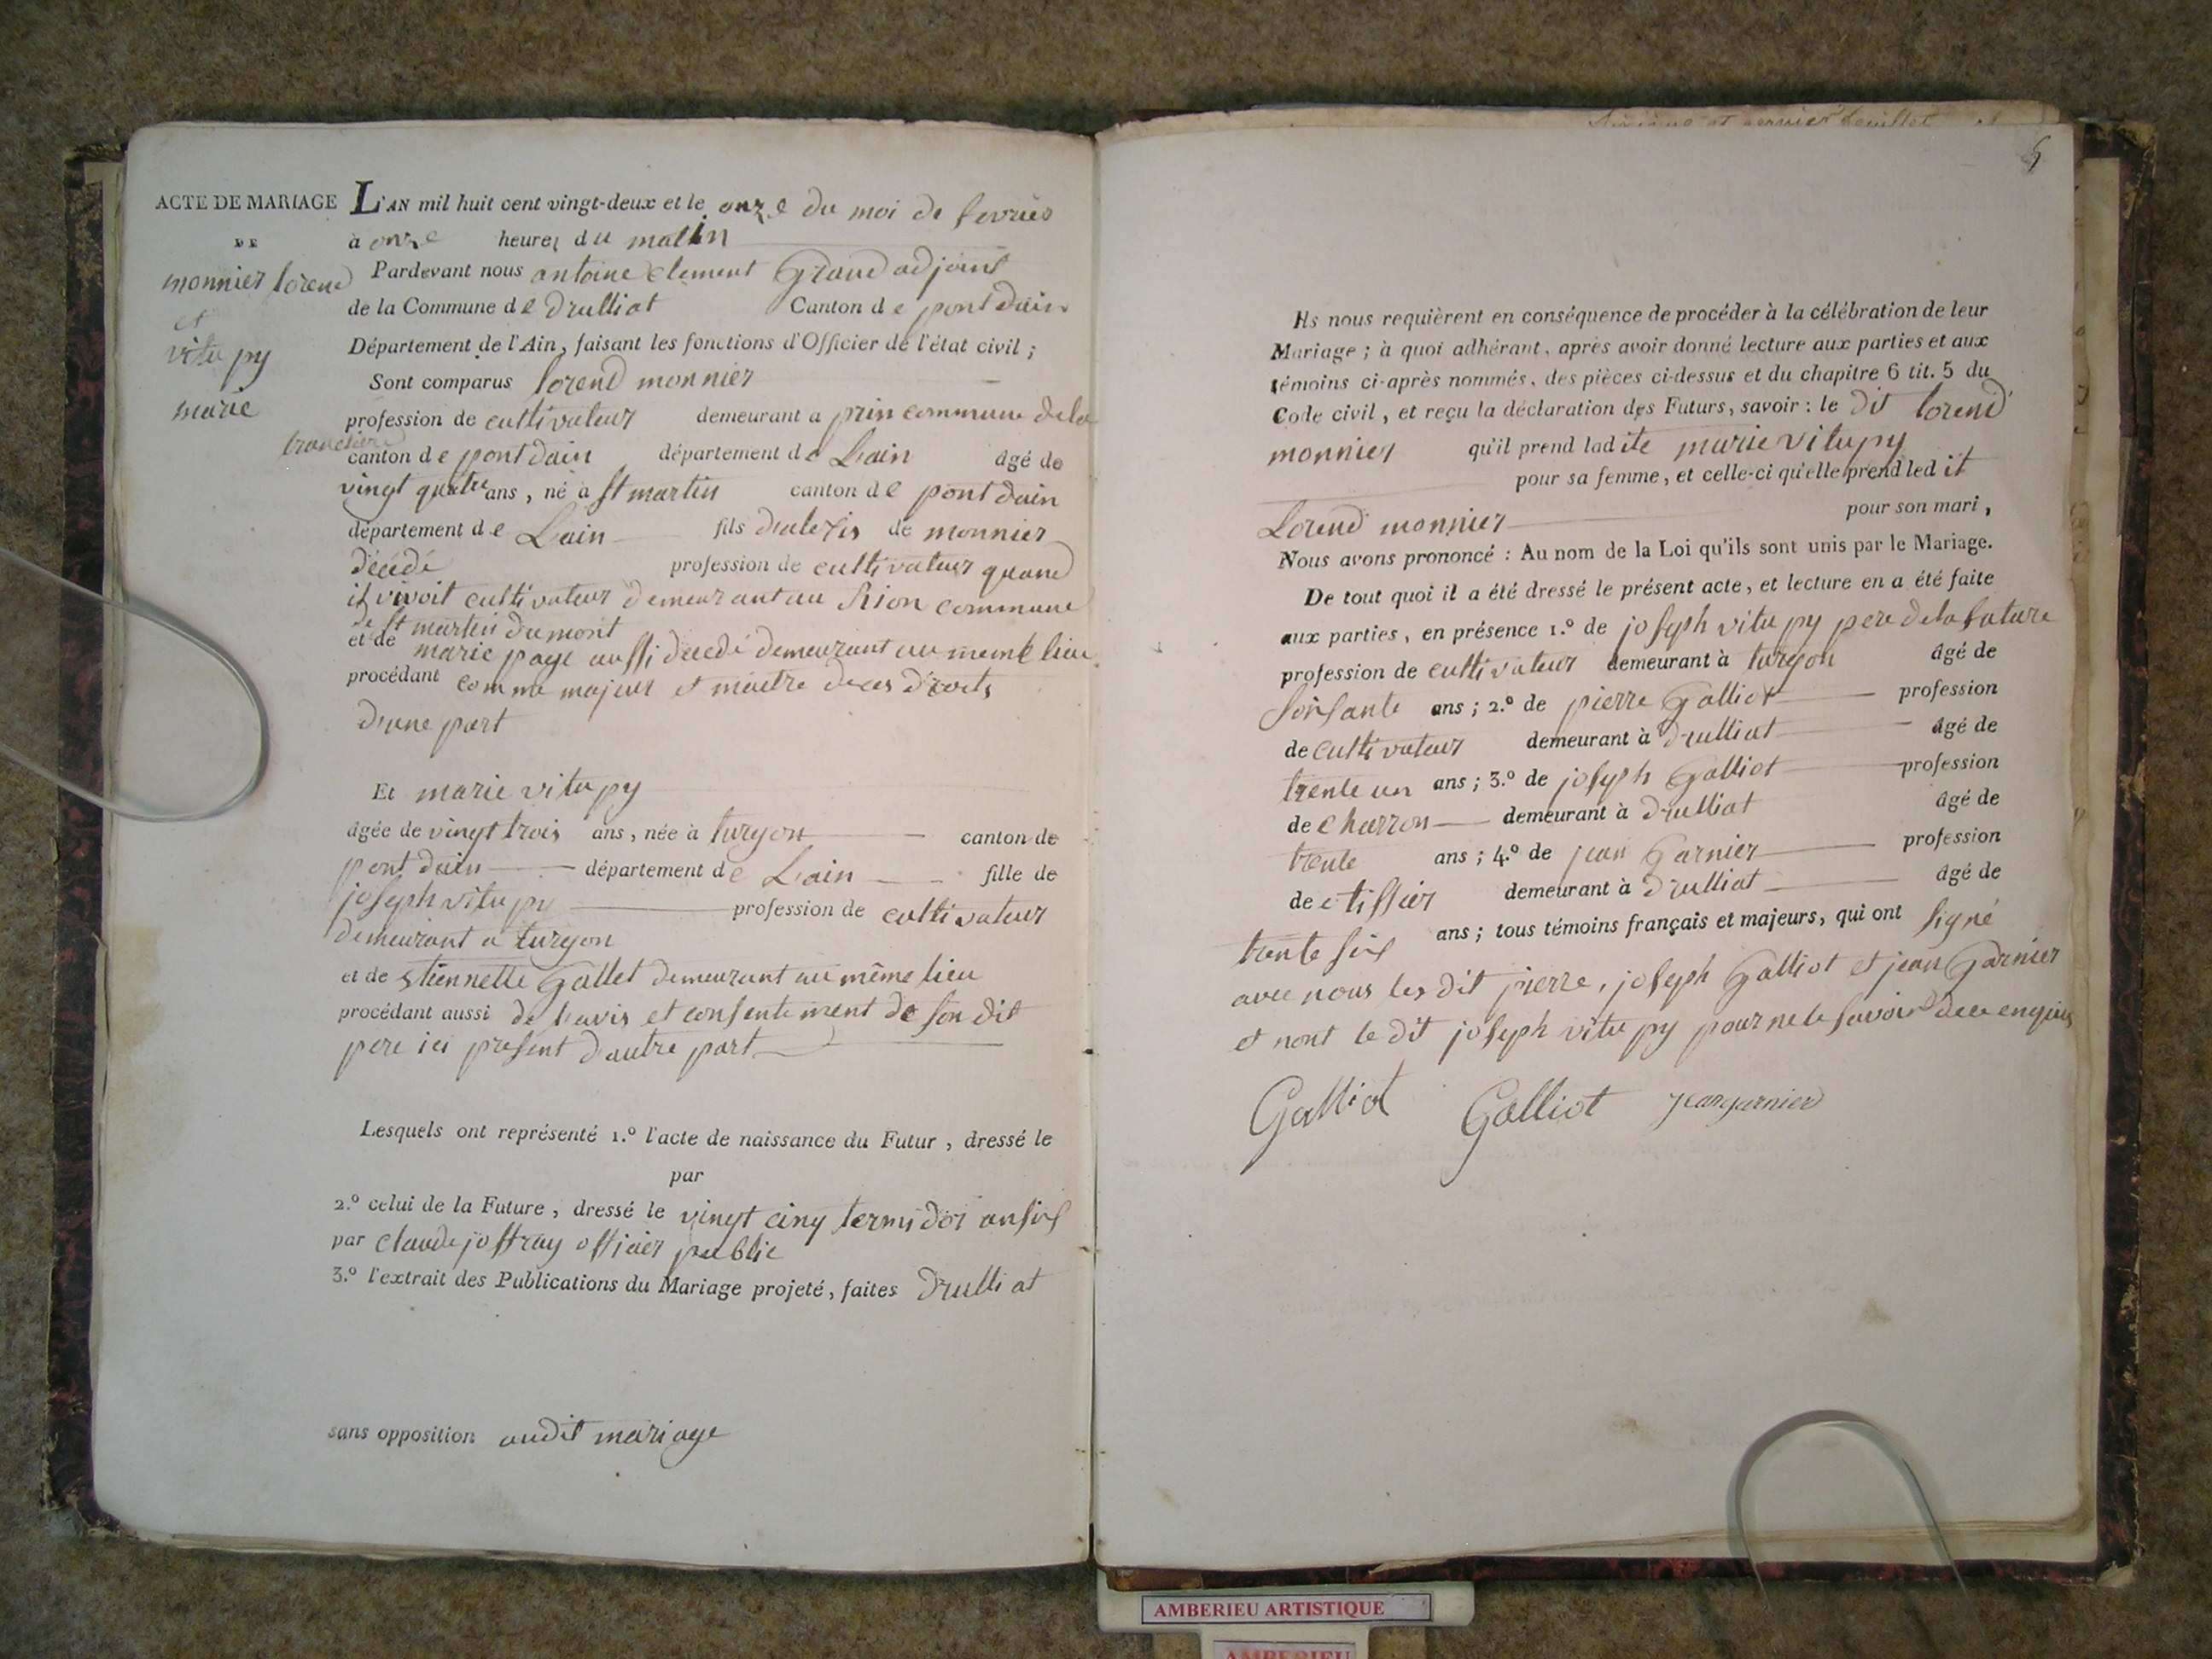 ACTE DE MARIAGE
DE
monnier lorend
et
vitu py
marie
L'AN mil huit cent vingt-deux et le onze du moi de fevrier
à onze heures du matin
Pardevant nous antoine Clement Graud adjoint
de la Commune de Drulliat Canton de pont Dain
Département de l'Ain, faisant les fonctions d'Officier de l'état civil ;
Sont comparus lorend monnier
profession de cultivateur demeurant a prin commune dela
tranclière
canton de pont dain département de Lain âgé de
vingt quatre ans, né à St martin canton de pont dain
département de Lain fils dalexis de monnier
décédé profession de cultivateur quand
il vivoit cultivateur demeurant au commune
de St martin dumont
et de marie page aussi décédé demeurant au meme lieu
procédant comme majeur et maitre de ces droits
d'une part
Et marie vitu py
âgée de vingt trois ans, née à turgon canton de
pont dain département de Lain fille de
joseph vitu py profession de cultivateur
demeurant a turgon
et de Etiennette Gallet demeurant au même lieu
procédant aussi de lavis et consentement de son dit
pere ici présent d'autre part
Lesquels ont représenté 1.º l'acte de naissance du Futur, dressé le
par
2.º celui de la Future, dressé le vingt cinq termidor an six
par claude joffray officier public
3.º l'extrait des Publications du Mariage projeté, faites drulliat
sans opposition audit mariage
Ils nous requièrent en conséquence de procéder à la célébration de leur
Mariage ; à quoi adhérant, après avoir donné lecture aux parties et aux
témoins ci-après nommés, des pièces ci-dessus et du chapitre 6 tit. 5 du
Code civil, et reçu la déclaration des Futurs, savoir : le dit lorend
monnier qu'il prend ladite marie vitu py
pour sa femme, et celle-ci qu'elle prend ledit
Lorend monnier pour son mari,
Nous avons prononcé : Au nom de la Loi qu'ils sont unis par le Mariage.
De tout quoi il a été dressé le présent acte, et lecture en a été faite
aux parties, en présence 1.º de joseph vitu py pere dela future
profession de cultivateur demeurant à turgon âgé de
soisante ans ; 2.º de pierre Galliot profession
de cultivateur demeurant à drulliat âgé de
trente un ans ; 3.º de joseph Galliot profession
de charron demeurant à drulliat âgé de
trente ans ; 4.º de jean Garnier profession
de tissier demeurant à drulliat âgé de
trente six ans ; tous témoins français et majeurs, qui ont signé
avec nous les dit pierre, joseph Galliot et jean Garnier
et nont le dit joseph vitu py pour ne le savoir de ce enquis
Galliot Galliot jean garnier
AMBERIEU ARTISTIQUE
AMBERIEU